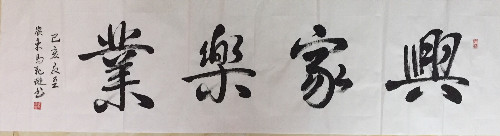 興家樂業
己亥夏至